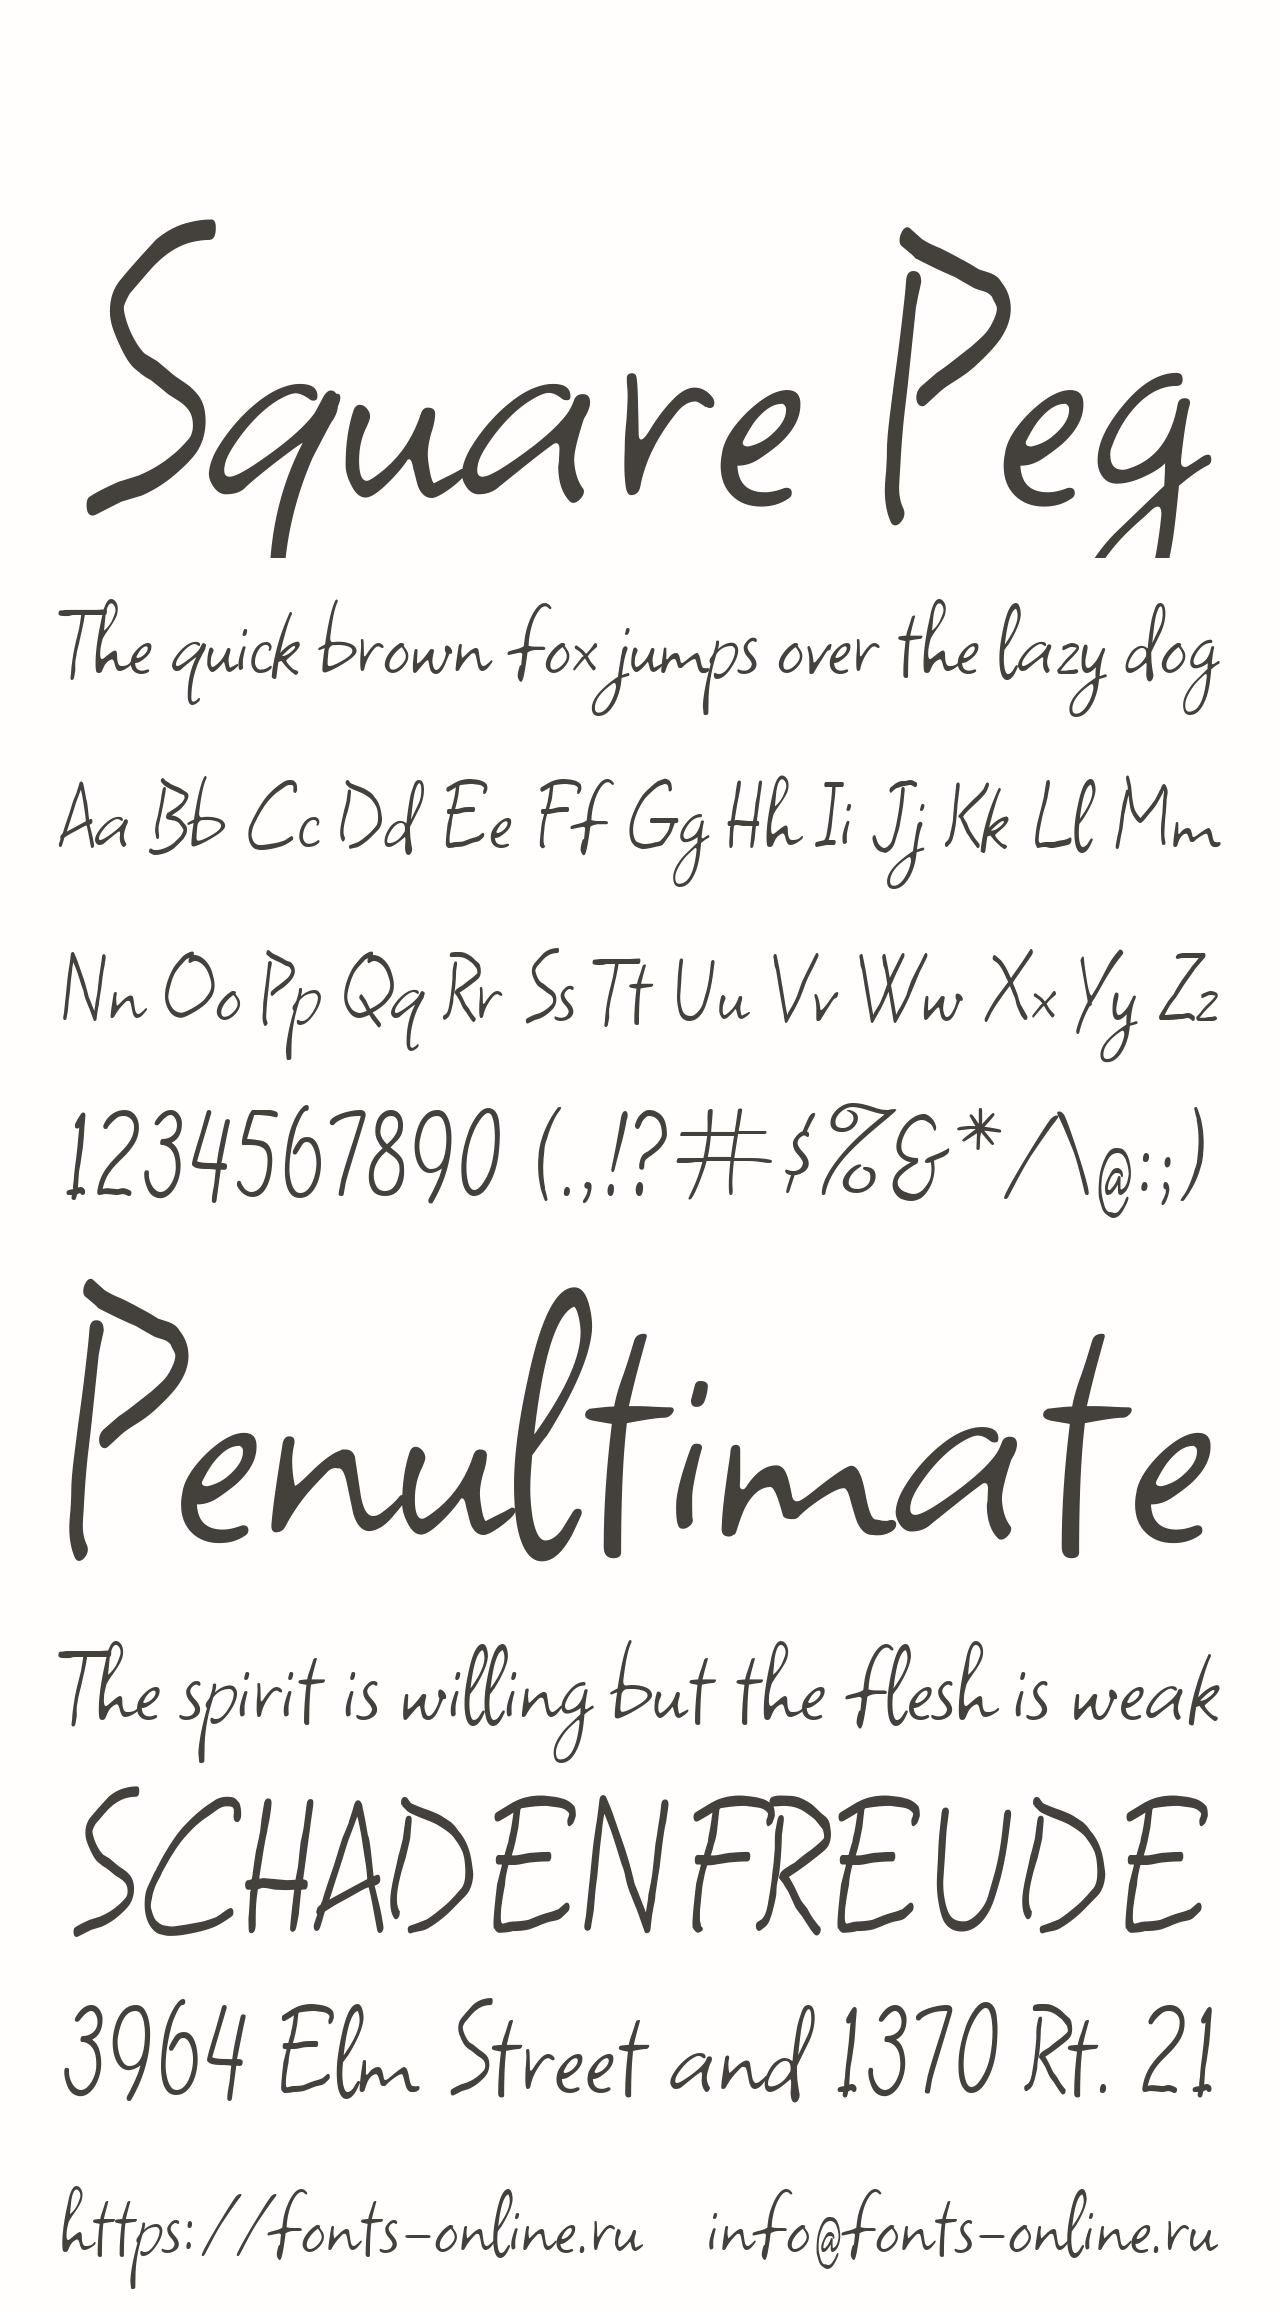 Square Peg
The quick brown fox jumps over the lazy dog
Aa Bb Cc Dd Ee Ff Gg Hh Ii Jj Kk Ll Mm
Nn Oo Pp Qq Rr Ss Tt Uu Vv Ww Xx Yy Zz
1234567890 (.,!?#$%&*/\@:;)
Penultimate
The spirit is willing but the flesh is weak
SCHADENFREUDE
3964 Elm Street and 1370 Rt. 21
https://fonts-online.ru info@fonts-online.ru